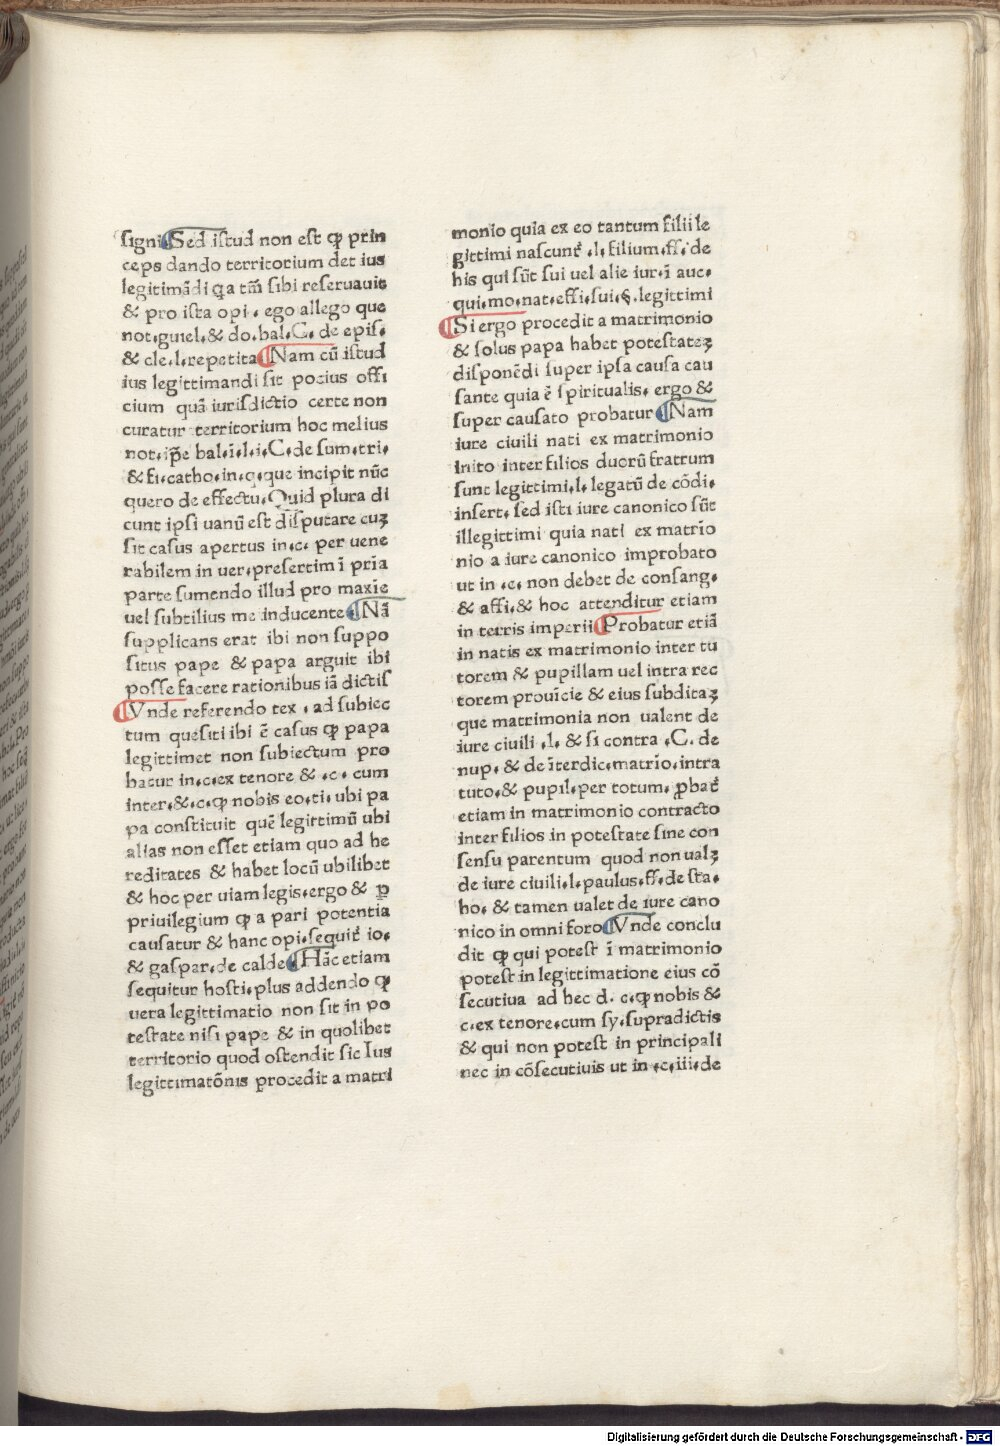 signi ¶ Sed istud non est ꝙ prin
ceps dando territorium det ius
legitimãdi q̃a tm̃ sibi reseruauit
& pro ista opi. ego allego que
not.guiel.& do.bal.C. de epis.
& cle.l.repetita ¶ Nam cũ istud
ius legittimandi sit pocius offi
cium quã iurisdictio certe non
curatur territorium hoc melius
not.ip̃e bal.ĩ.l.i.C.de sum.tri.
& fi.catho.in.q.que incipit nũc
quero de effectu.Quid plura di
cunt ipsi uanũ est disputare cuʒ
sit casus apertus in.c. per uene
rabilem in uer.presertim ĩ pria
parte sumendo illud pro maxie
uel subtilius me inducente ¶ Nã
supplicans erat ibi non suppo
situs pape & papa arguit ibi
posse facere rationibus iã dictis
¶ Vnde referendo tex . ad subiec
tum quesiti ibi ẽ casus ꝙ papa
legittimet non subiectum pro
batur in.c.ex tenore & .c. cum
inter.&.c.ꝙ nobis eo.ti. ubi pa
pa constituit quẽ legittimũ ubi
alias non esset etiam quo ad he
reditates & habet locũ ubilibet
& hoc per uiam legis.ergo & ꝑ
priuilegium ꝙ a pari potentia
causatur & hanc opi.sequit̃ io.
& gaspar.de calde ¶ Hãc etiam
sequitur hosti.plus addendo ꝙ
uera legittimatio non sit in po
testate nisi pape & in quolibet
territorio quod ostendit sic Ius
legittimatõnis procedit a matri
monio quia ex eo tantum filii le
gittimi nascunt̃ .l. filium.ff. de
his qui sũt sui uel alie iur.ĩ auc.
qui.mo.nat.effi.sui.§.legittimi
¶ Si ergo procedit a matrimonio
& solus papa habet potestateʒ
disponẽdi super ipsa causa cau
sante quia ẽ spiritualis. ergo &
super causato probatur ¶ Nam
iure ciuili nati ex matrimonio
inito inter filios duorũ fratrum
sunt legittimi.l. legatũ de cõdi.
insert. sed isti iure canonico sũt
illegittimi quia nati ex matrĩo
nio a iure canonico improbato
ut in .c. non debet de consang.
& affi.& hoc attenditur etiam
in terris imperii ¶ Probatur etiã
in natis ex matrimonio inter tu
torem & pupillam uel intra rec
torem prouĩcie & eius subditaʒ
que matrimonia non ualent de
iure ciuili .l. & si contra .C. de
nup. & de ĩterdic.matrio.intra
tuto.& pupil.per totum. ꝓbat̃
etiam in matrimonio contracto
inter filios in potestate sine con
sensu parentum quod non ualʒ
de iure ciuili.l.paulus.ff.de sta.
ho. & tamen ualet de iure cano
nico in omni foro ¶ Vnde conclu
dit ꝙ qui potest ĩ matrimonio
potest in legittimatione eius cõ
secutiua ad hec d. c.ꝙ nobis &
c.ex tenore.cum sy.supradictis
& qui non potest in principali
nec in cõsecutiuis ut in .c.iii.de
Digitalisierung gefördert durch die Deutsche Forschungsgemeinschaft - DFG